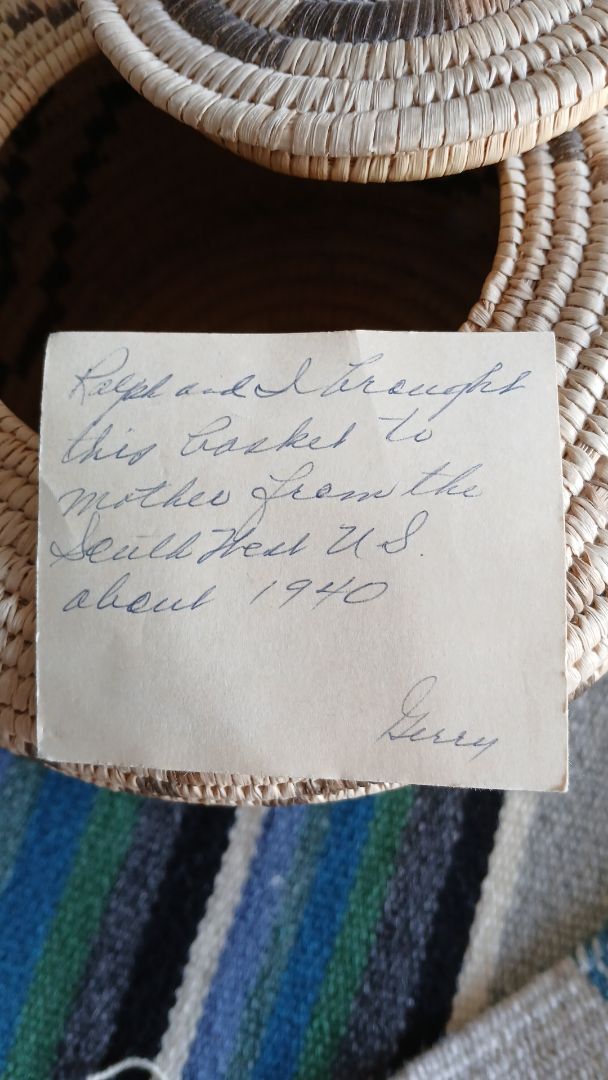 Ralph and I brought
this basket to
mother from the
South West U S.
about 1940
Gerry